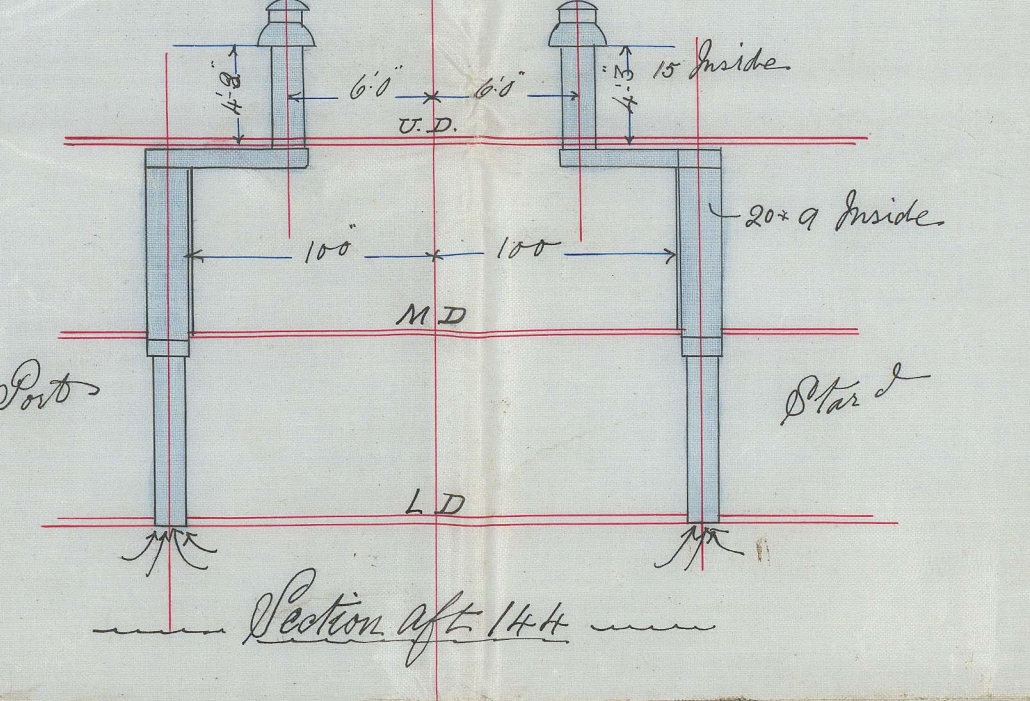 4'-3" 6'0" 6'0" 4'-3" 15 Inside
U.D.
20 x 9 Inside
10 0" 10 0
M D
Port Starᵈ
L D
Section aft 144